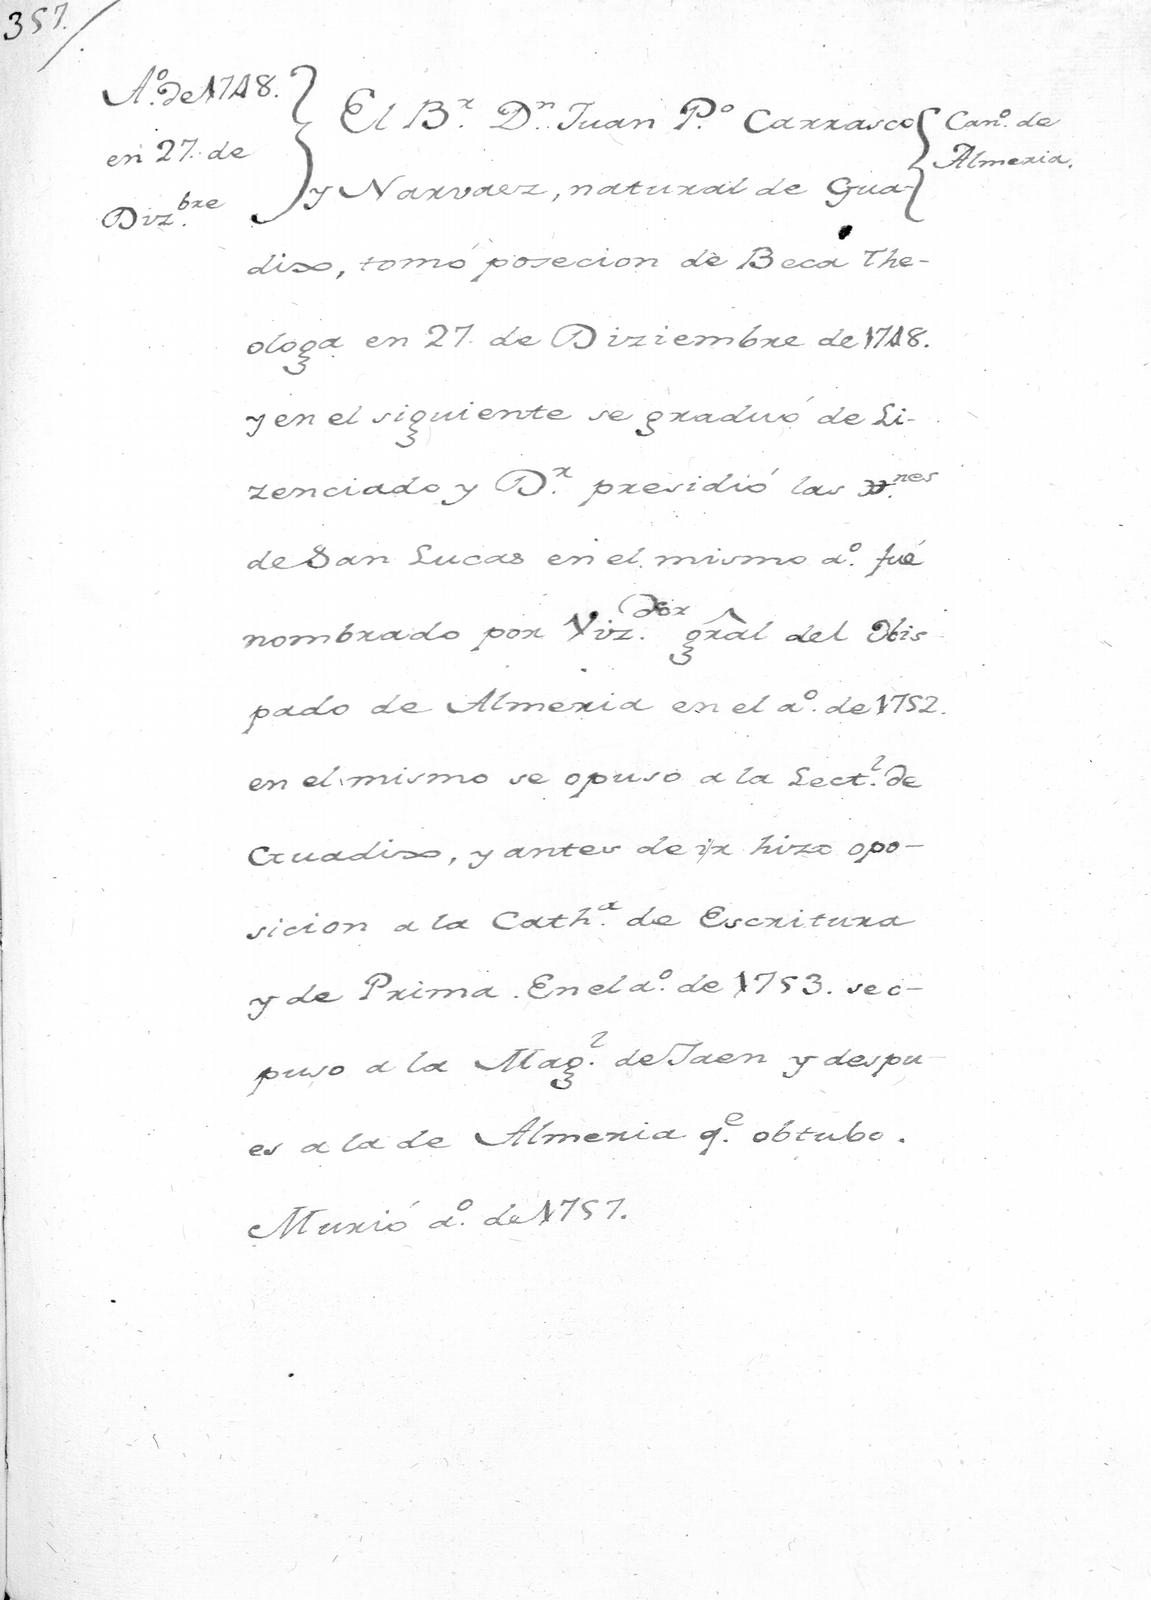 357.
A.º de 1748.
en 27. de
Diz.bre
El B.r D.n Juan P.º Carrasco
Can.º de
Almeria.
y Narvaez, natural de Gua-
dix, tomó posecion de Beca The-
ologa en 27. de Diziembre de 1748.
y en el siguiente se graduó de Li-
zenciado y D.r presidió las
de San Lucas en el mismo a.º fué
nombrado por Viz.dor grâl del Obis
pado de Almeria en el a.º de 1752.
en el mismo se opuso a la Lect.l de
Guadix, y antes de ir hizo opo-
sicion a la Cath.a de Escritura
y de Prima. En el a.º de 1753. se o-
puso a la Mag.l de Jaen y despu-
es a la de Almeria q.e obtubo.
Murió a.º de 1757.